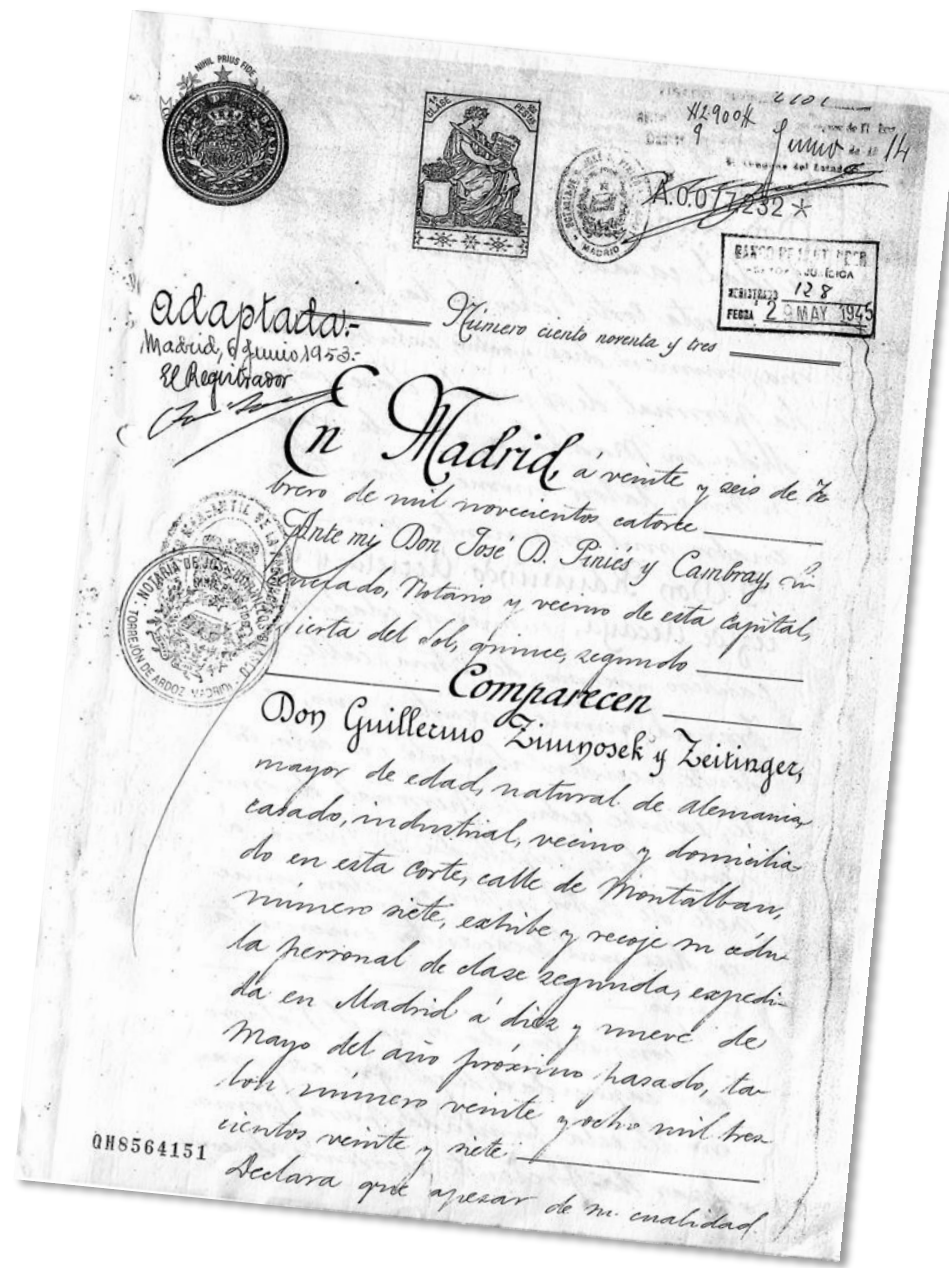 NIHIL PRIUS FIDE
1ª CLASE
PESETAS
#2900#
9 Junio de 14
del Estado
A.0.017.232 *
MADRID
BANCO DE
REGISTRADO 128
FECHA 29 MAY 1945
Adaptada.-
Madrid, 6 Junio 1953.-
El Registrador
Número ciento noventa y tres
En Madrid, á veinte y seis de Fe
brero de mil novecientos catorce
Ante mi Don José D. Piniés y Cambray,
Notario y vecino de esta capital,
del Sol, quince, segundo
NOTARIA DE JOSE
TORREJÓN DE ARDOZ MADRID
Comparecen
Don Guillermo Zimnosek y Zeitinger,
mayor de edad, natural de Alemania,
casado, industrial, vecino y domicilia-
do en esta corte, calle de Montalban,
número siete, exhibe y recoje su cédu
la personal de clase segunda, expedi-
da en Madrid á diez y nueve de
Mayo del año próximo pasado, ta
lon número veinte y ocho mil tres
cientos veinte y siete.
Declara que apesar de su cualidad
QH8564151